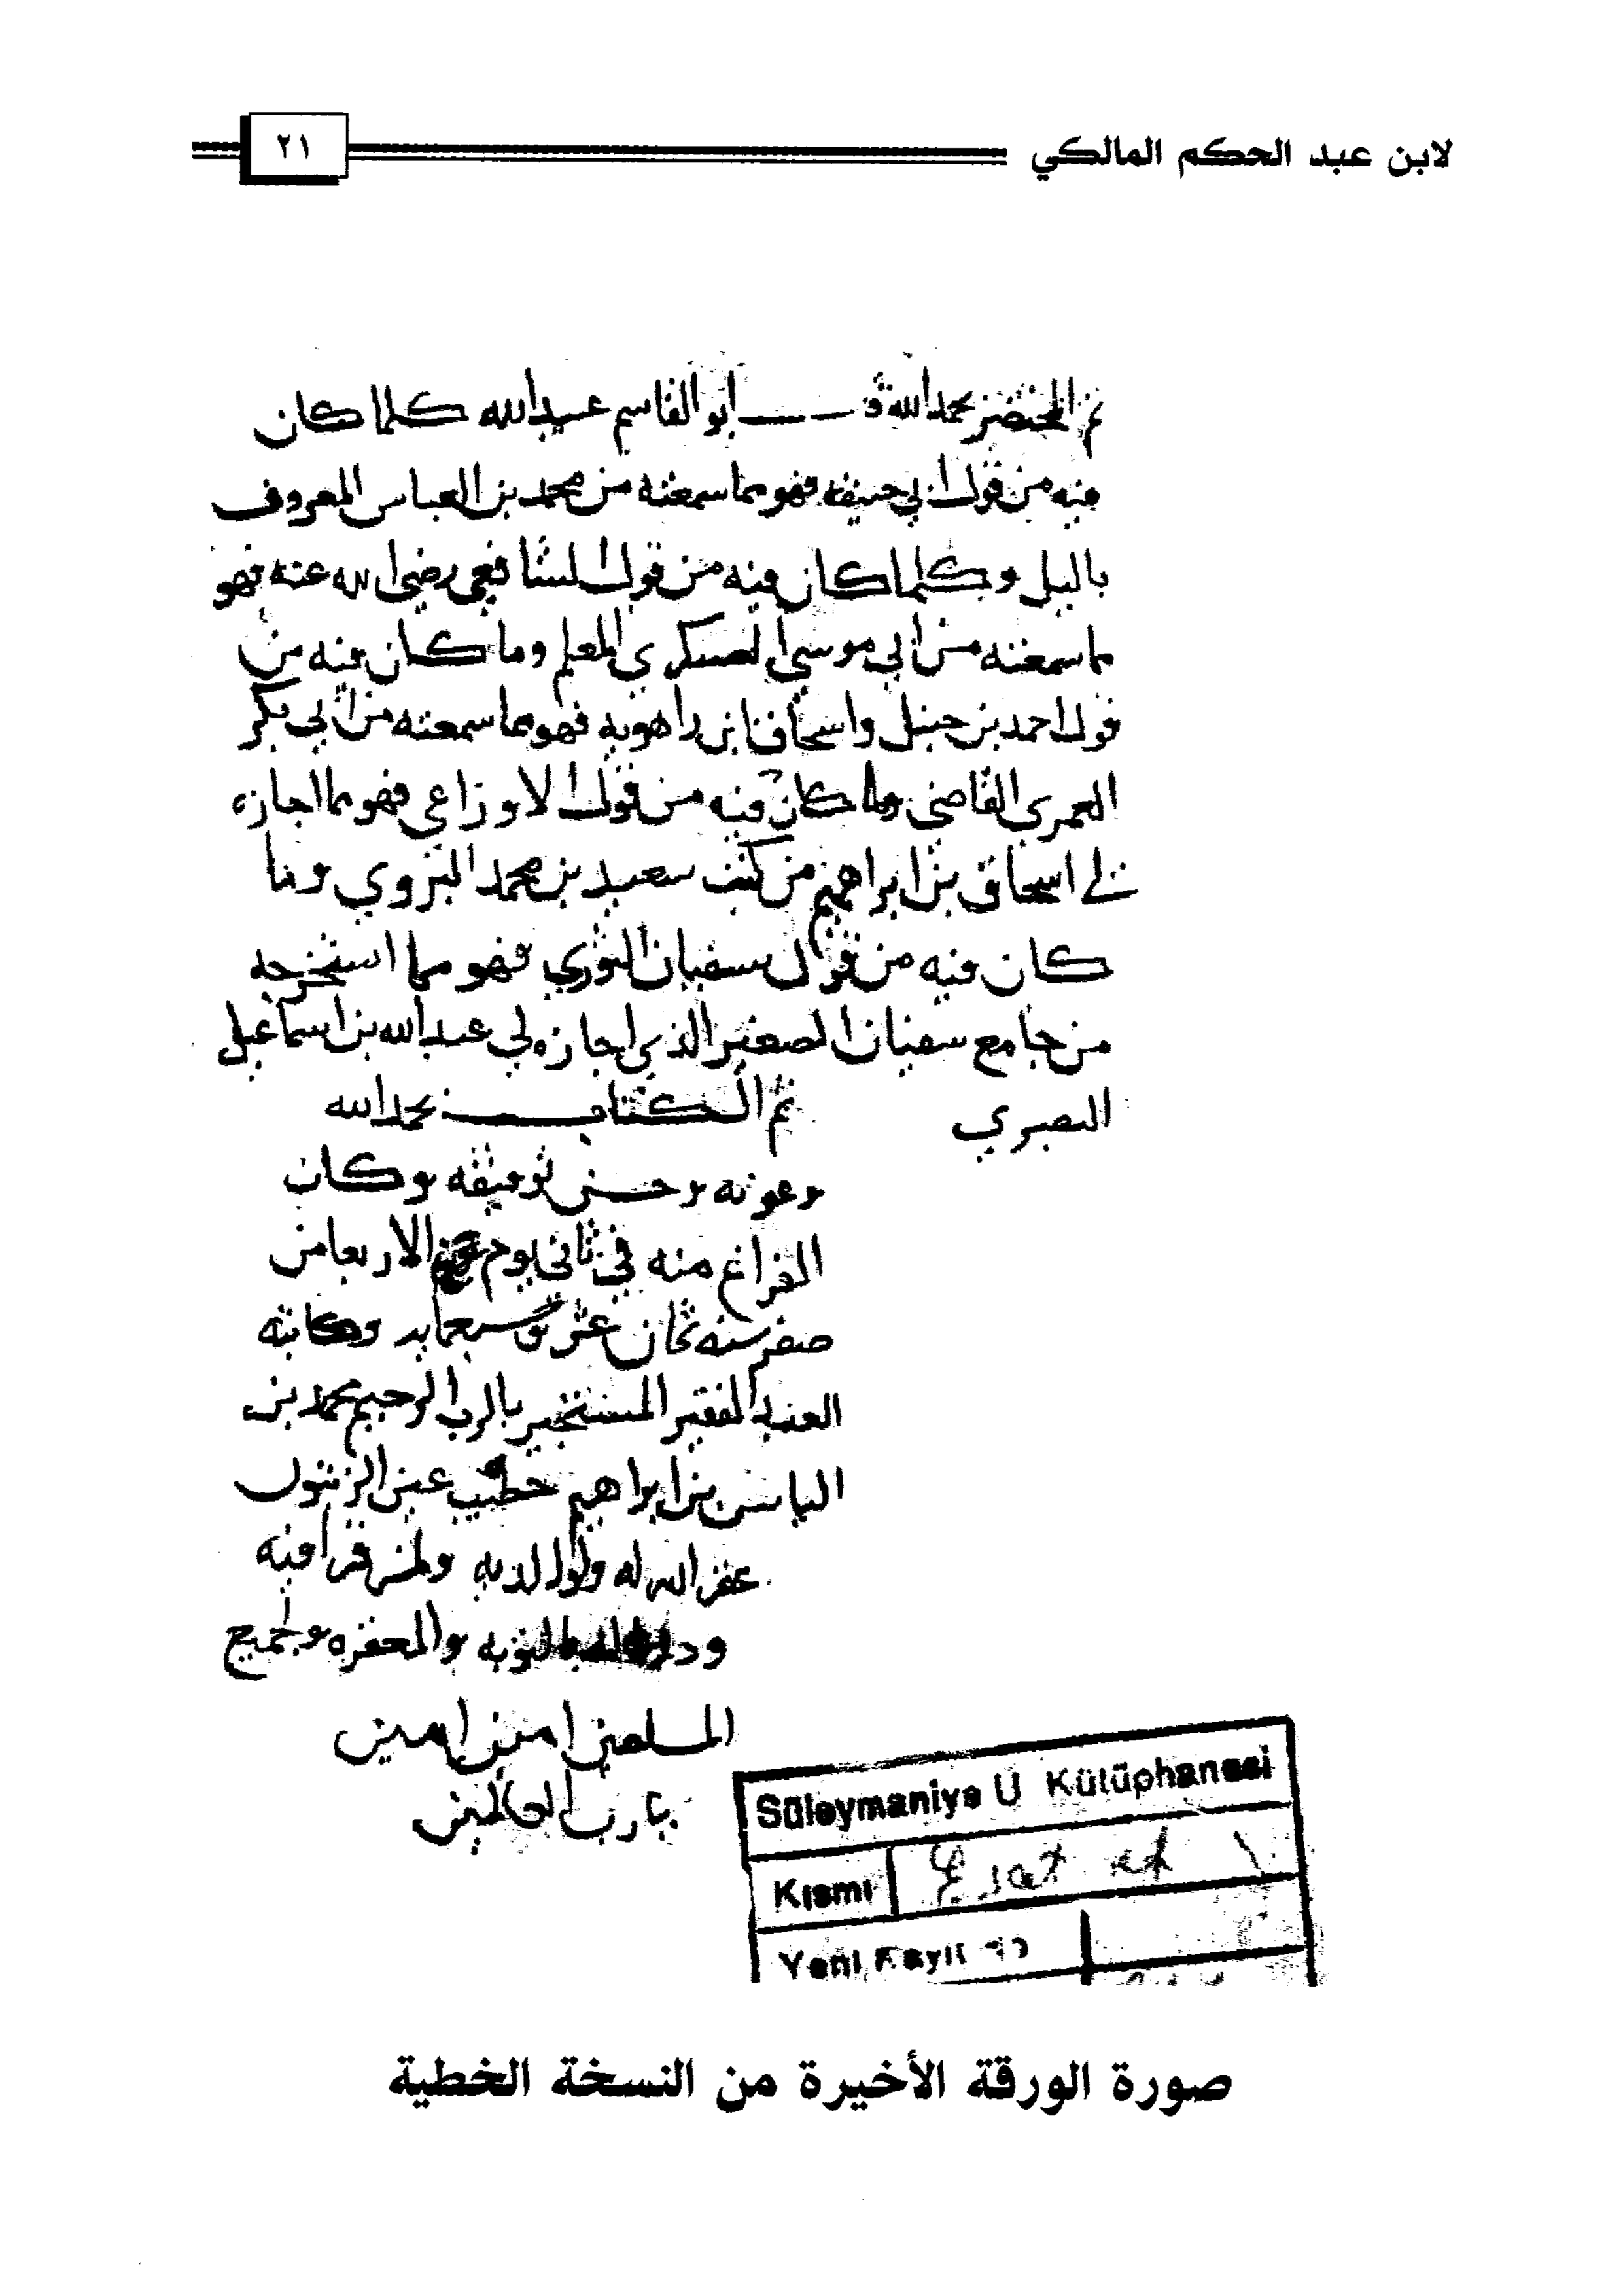 لابن عبد الحكم المالكي
٢١
تم المختصر بحمد الله قــــال ابو القاسم عبيد الله كلما كان
فيه من قول ابي حنيفه فهو مما سمعته من محمد بن العباس المعروف
بالبل وكلما كان فيه من قول الشافعي رضي الله عنه فهو
مما سمعته من ابي موسى العسكري المعلم وما كان فيه من
قول احمد بن حنبل واسحاق ابن راهويه فهو مما سمعته من ابي بكر
العمري القاضي وما كان فيه من قول الاوزاعي فهو مما اجازه
لي اسحاق بن ابراهيم من كتب سعيد بن محمد البيروتي وما
كان فيه من قول سفيان الثوري فهو مما استخرجه
من جامع سفيان الصغير الذي اجازه لي عبد الله بن اسماعيل
البصري تم الكتاب بحمد الله
وعونه وحسن توفيقه وكان
الفراغ منه في ثاني يوم الاربعا من
صفر سنه ثمان عشر وسبعمايه وكاتبه
العبد الفقير المستجير بالرب الرحيم محمد بن
الياس بن ابراهيم خطيب عين الزيتون
غفر الله له ولوالديه ولمن قرا فيه
ودعا له بالتوبه والمغفره ولجميع
المسلمين امين امين
يا رب العالمين
Süleymaniye U Kütüphanesi
Kısmı Esat ef
Yeni Kayıt No
صورة الورقة الأخيرة من النسخة الخطية